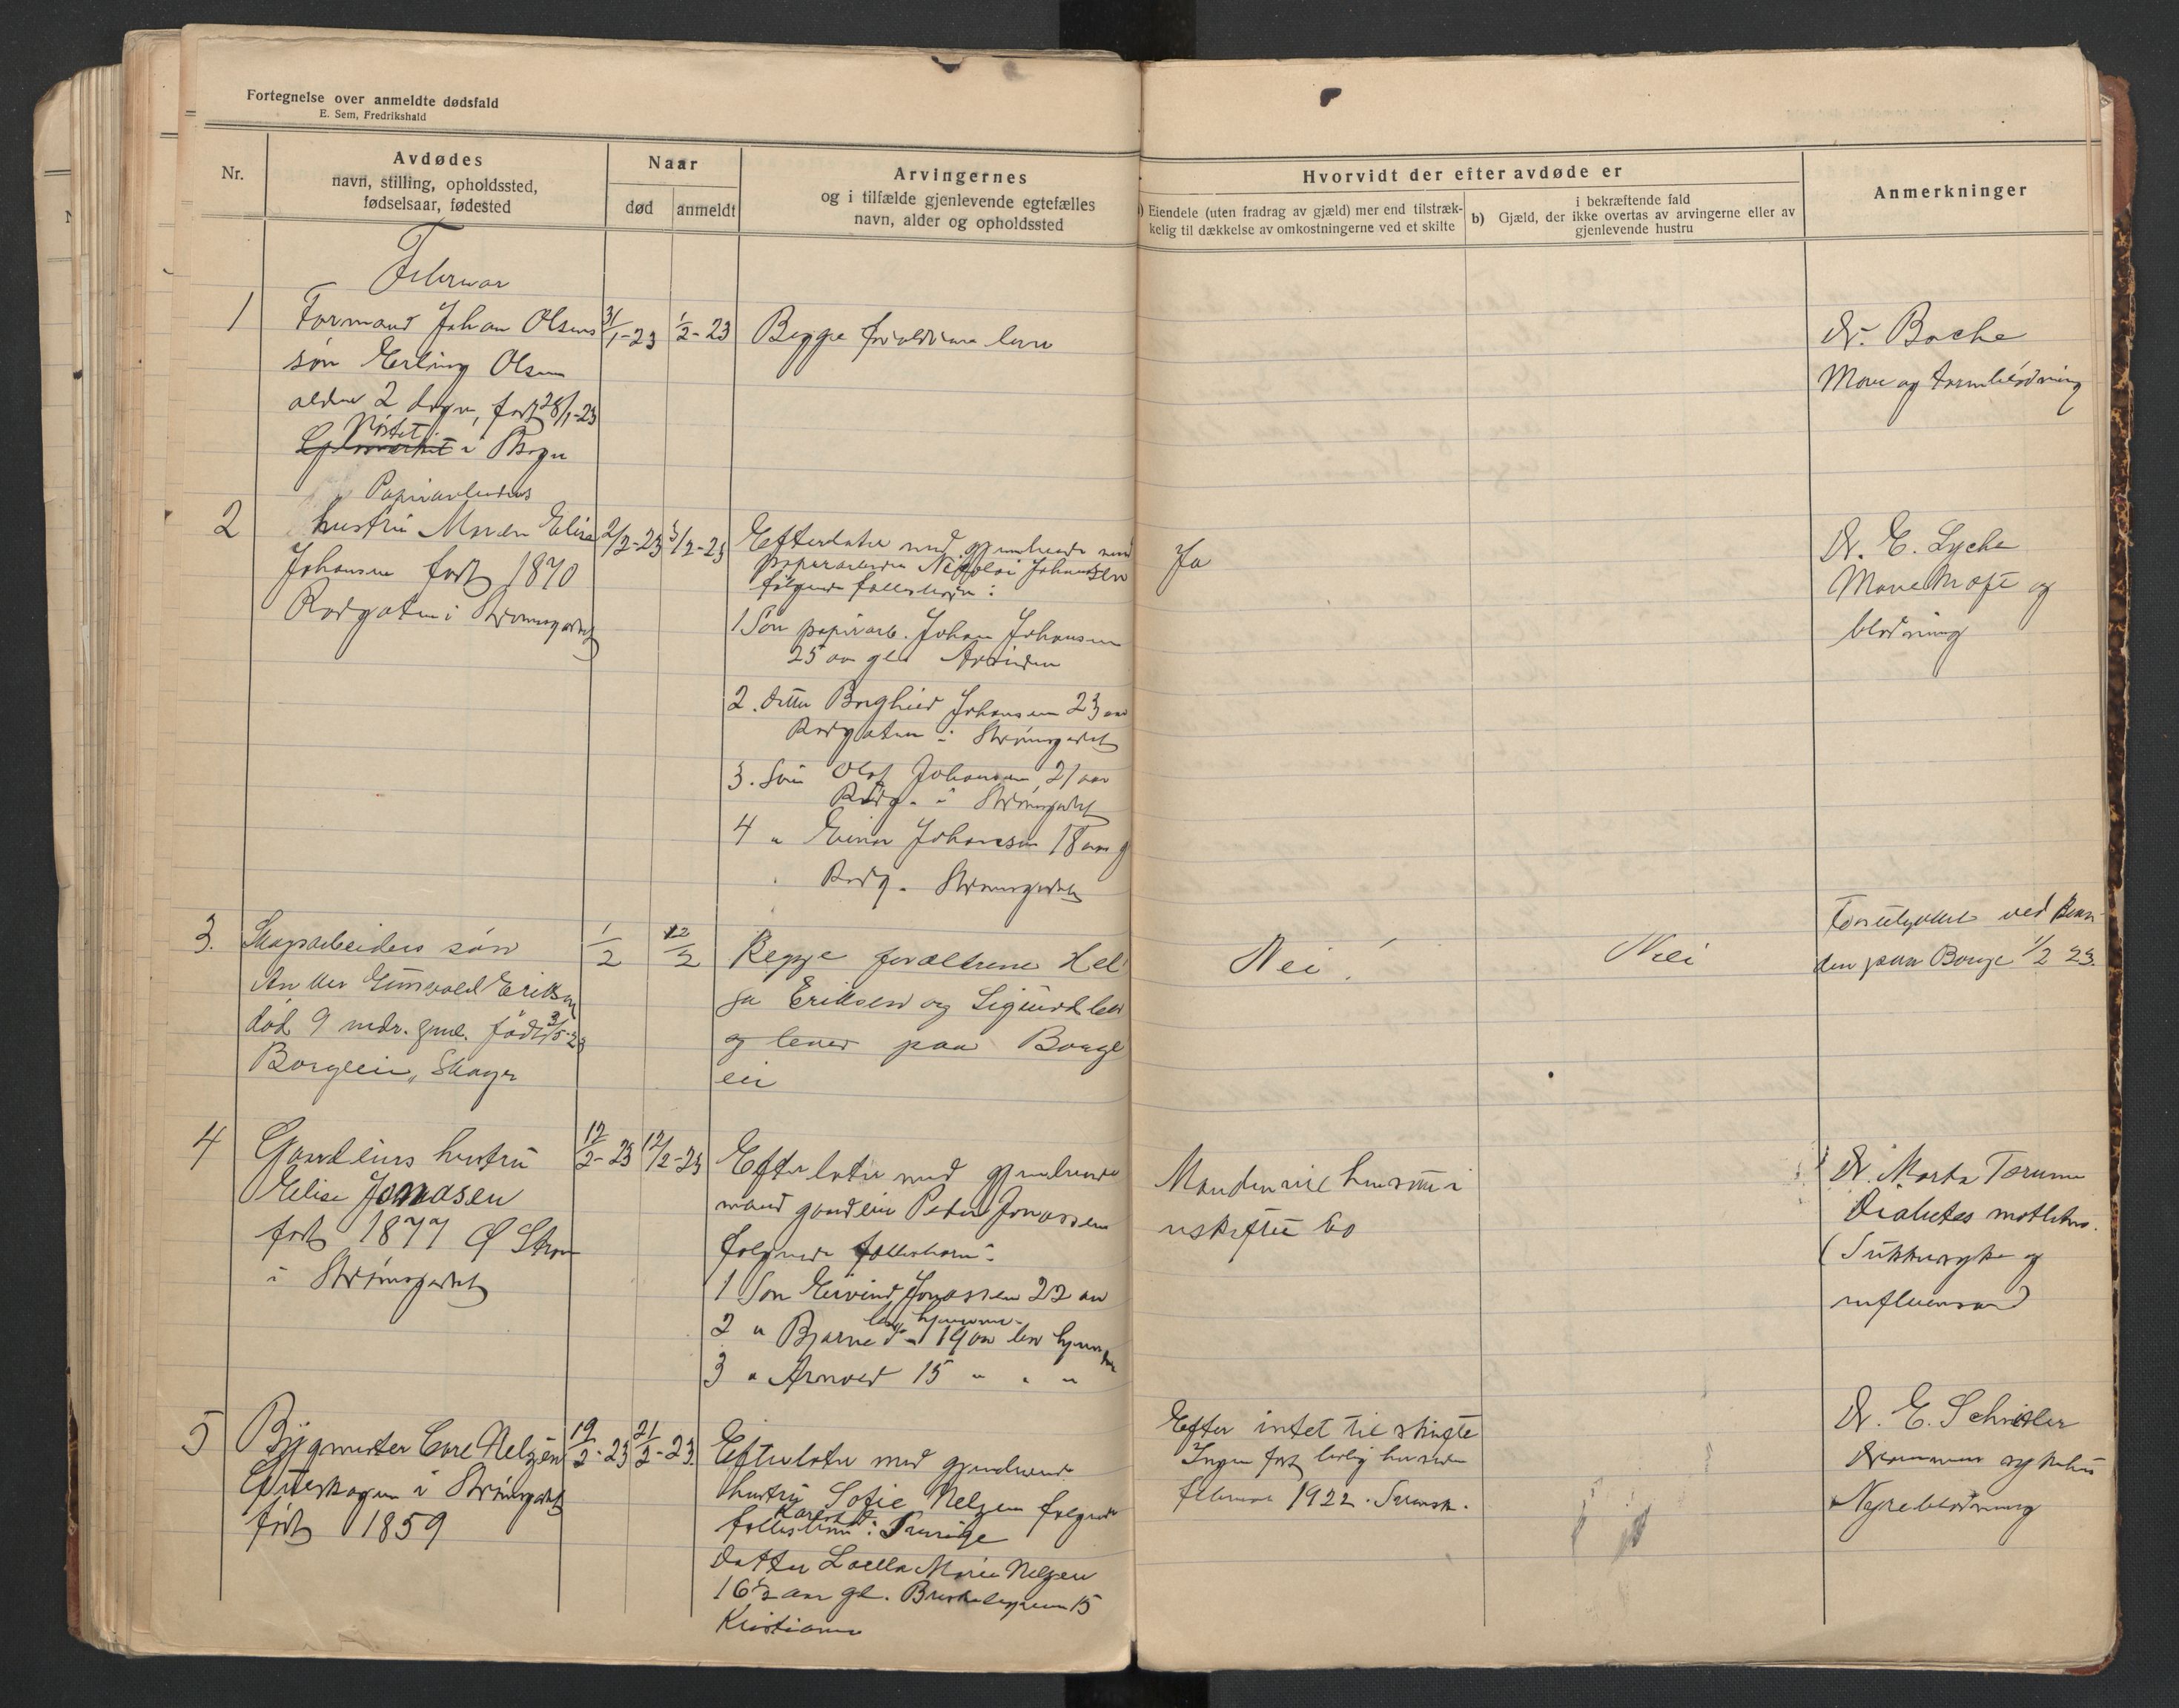 Fortegnelse over anmeldte dødsfald
E. Sem, Fredrikshald
Nr.
Avdødes
navn, stilling, opholdssted,
fødselsaar, fødested
Naar
død
anmeldt
Arvingernes
og i tilfælde gjenlevende egtefælles
navn, alder og opholdssted
Hvorvidt der efter avdøde er
Eiendele (uten fradrag av gjæld) mer end tilstræk-
kelig til dækkelse av omkostningerne ved et skifte
b) Gjæld, der ikke overtas av arvingerne eller av
i bekræftende fald
gjenlevende hustru
Anmerkninger
Februar
1
Formand Johan Olsens
søn Erling Olsen
alder 2 dogn, født 28/1-23
Nøstet i
31/1-23
1/2-23
Begge forældrene lever
Dr. Bache
Mave og tarmblødning
2
Papirarbeiders
hustru Maren Elise
Johansen født 1870
Rødgaten i Strømsgodset
2/2-23
3/2-23
Efterlater med gjenlevende mand
papirarbeider Nikolai Johansen
følgende fællesbørn:
1 Søn papirarb. Johan Johansen
25 aar gl
2. datter Borghild Johansen 23 aar
Rødgaten i Strømsgodset
3. Søn Olaf Johansen 21 aar
Rødg. i Strømsgodset
4 " Einar Johansen 18 aar g
Rødg. Strømsgodset
Ja
Dr. E. Lyche
Mavekræft og
blødning
3.
Skogsarbeiders søn
Gunvald Eriksen
død 9 mdr. gml. født
Borgeie, Skoger
1/2
12/2
Begge forældrene Hel
ga Eriksen og Sigurd lev
og lever paa Borge
eie
Nei!
Nei
Forulykket ved
den paa Borge 1/2 23.
4
Gaardeiers hustru
Elise Jonasen
født 1877 Ø Strøm
i Strømsgodset
12/2-23
12/2-23
Efterlater med gjenlevende
mand gaardeier Peder Jonassen
følgende fællesbørn:
1 Søn Eivind Jonassen 22 aar
lev. hjemme
2 " Bjarne do 19 aar lev hjemme
3 " Arnold 15 " " "
Manden vil hensitte i
uskiftet bo
Dr. Marta Torum
Diabetes
(Sukkersyke og
influensa)
5
Bygmester Carl Nelzén
i Strømsgodset
født 1859
19/2-23
21/2-23
Efterlater med gjenlevende
hustru Sofie Nelzen følgende
Karlstad
fællesbarn: Sverige
Datter Laella Marie Nelzen
16½ aar gl. 15
Kristiania
Efter intet til skifte
Ingen fast bolig her siden
februar 1922. Svensk.
Dr. E.
Drammens sykehus
Nyreblødning